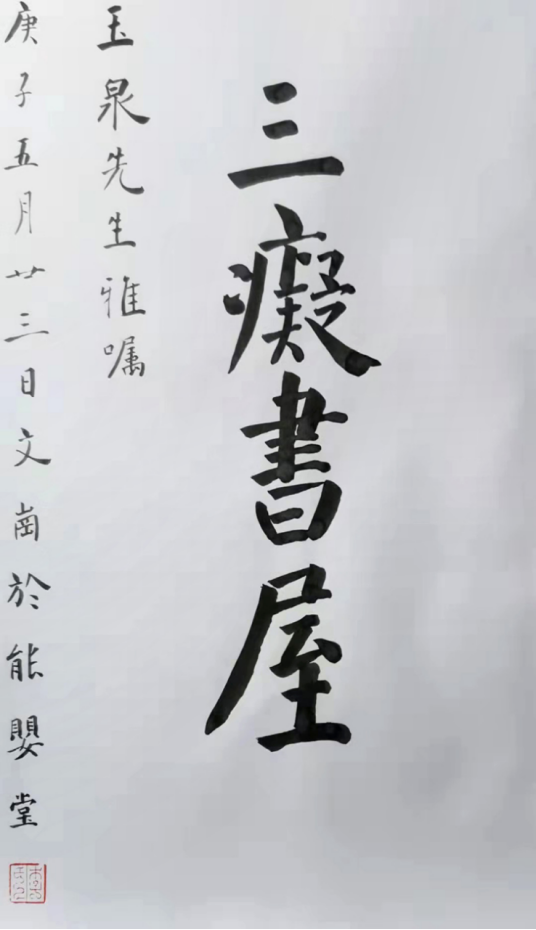 三癡書屋
玉泉先生雅嘱
庚子五月廿三日文崗於能嬰堂